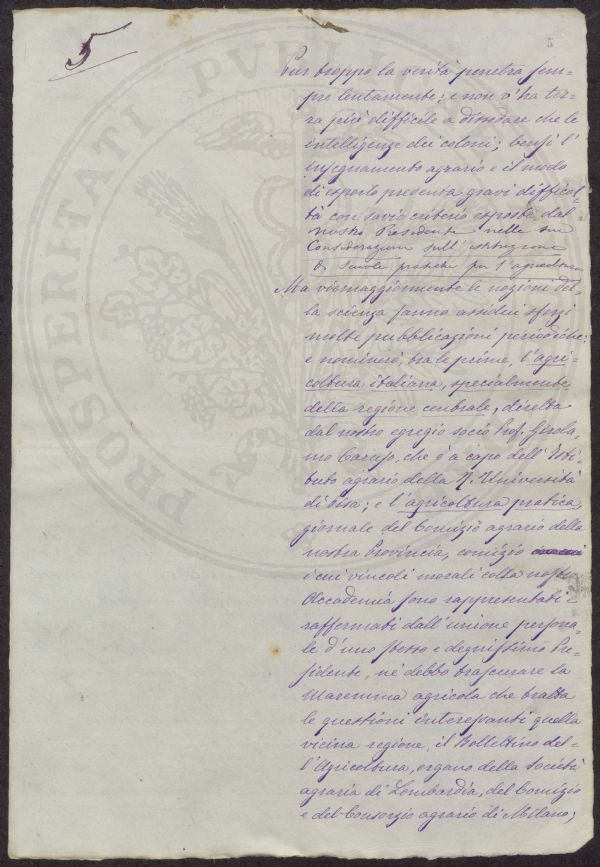 5
5
Pur troppo la verità penetra sem-
pre lentamente; e non v'ha ter-
ra più difficile a dissodare che le
intelligenze dei coloni; bensì l'
insegnamento agrario e il modo
di esporlo presenta gravi difficol-
tà con savio criterio esposte dal
nostro Presidente nelle sue
Considerazioni sull'istituzione
di scuole pratiche per l'agricoltura
Ma viemaggiormente le nozioni del-
la scienza fanno assidui sforzi
molte pubblicazioni periodiche;
e nominerò, tra le prime, l'agri-
coltura italiana, specialmente
della regione centrale, diretta
dal nostro egregio socio Prof. Girola-
mo Caruso, che è a capo dell'Isti-
tuto agrario della R. Università
di Pisa; e l'agricoltura pratica,
giornale del Comizio agrario della
nostra Provincia, comizio
i cui vincoli morali colla nostra
Accademia sono rappresentati
raffermati dall'unione persona-
le d'uno stesso e degnissimo Pre-
sidente, nè debbo trascurare la
Maremma agricola che tratta
le questioni interessanti quella
vicina regione, il Bollettino del-
l'Agricoltura, organo della Società
agraria di Lombardia, del Comizio
e del Consorzio agrario di Milano;
PROSPERITATI PVBLI